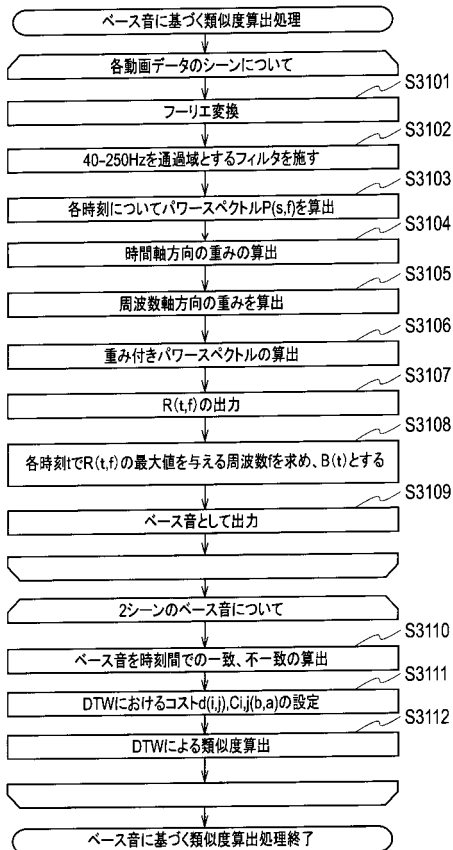 ベース音に基づく類似度算出処理
各動画データのシーンについて
S3101
フーリエ変換
S3102
40-250Hzを通過域とするフィルタを施す
S3103
各時刻についてパワースペクトルP(s,f)を算出
S3104
時間軸方向の重みの算出
S3105
周波数軸方向の重みを算出
S3106
重み付きパワースペクトルの算出
S3107
R(t,f)の出力
S3108
各時刻tでR(t,f)の最大値を与える周波数fを求め、B(t)とする
S3109
ベース音として出力
2シーンのベース音について
S3110
ベース音を時刻間での一致、不一致の算出
S3111
DTWにおけるコストd(i,j),Ci,j(b,a)の設定
S3112
DTWによる類似度算出
ベース音に基づく類似度算出処理終了